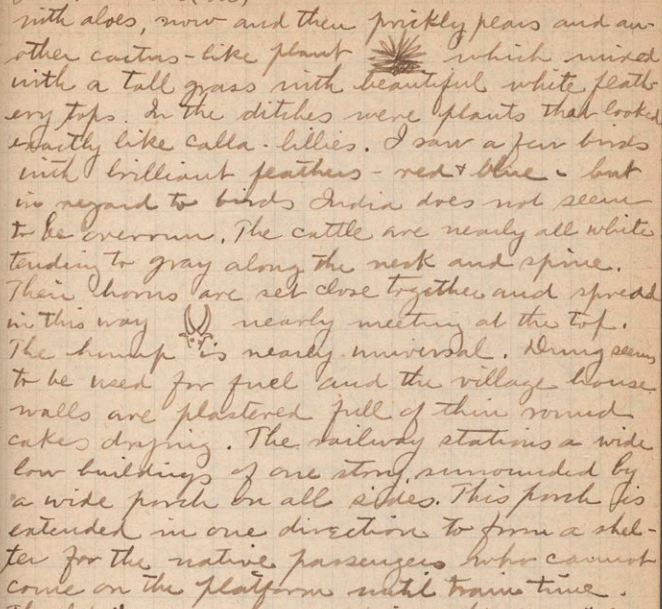 with aloes, now and then prickly pears and an-
other cactus-like plant which mixed
with a tall grass with beautiful white feath-
ery tops. In the ditches were plants that looked
exactly like calla-lillies. I saw a few birds
with brilliant feathers - red & blue - but
in regard to birds India does not seem
to be overrun. The cattle are nearly all white
tending to gray along the neck and spine.
Their horns are set close together and spread
in this way nearly meeting at the top.
The hump is nearly universal. Dung seems
to be used for fuel and the village house
walls are plastered full of thin round
cakes drying. The railway stations a wide
low buildings of one story, surrounded by
a wide porch on all sides. This porch is
extended in one direction to form a shel-
ter for the native passengers who cannot
come on the platform until train time.